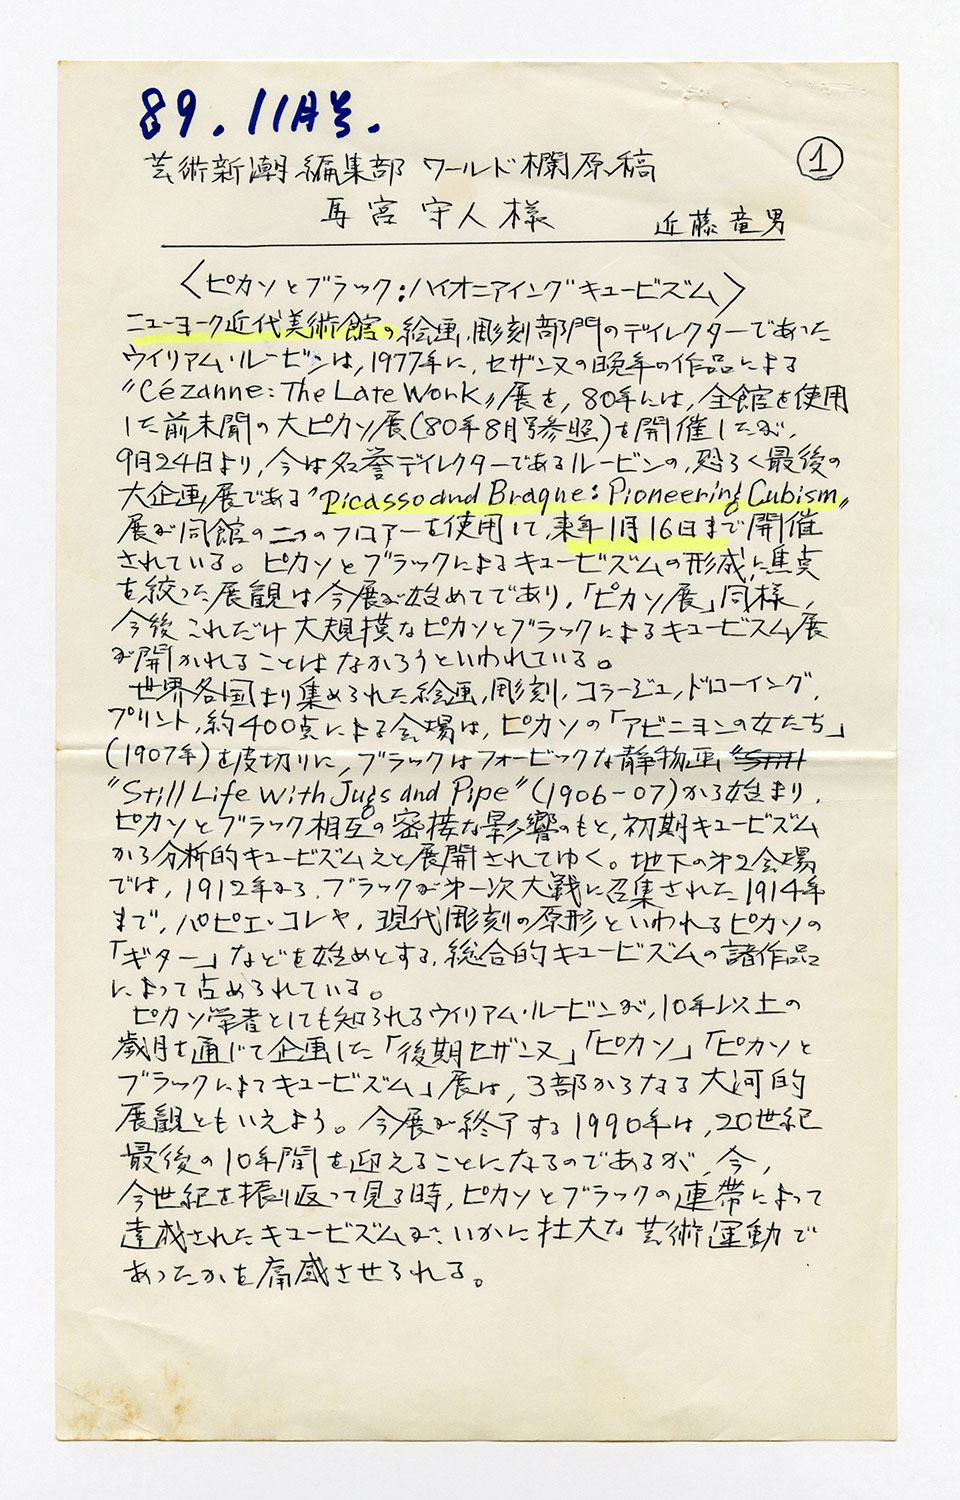 89.11月号.
芸術新潮編集部 ワールド欄原稿
①
馬宮守人様
近藤竜男
〈ピカソとブラック:パイオニアイングキュービズム〉
ニューヨーク近代美術館の絵画、彫刻部門のディレクターであった
ウイリアム・ルービンは、1977年に、セザンヌの晩年の作品による
"Cézanne: The Late Work"展を、80年には、全館を使用
した前未聞の大ピカソ展(80年8月号参照)を開催したが、
9月24日より、今は名誉ディレクターであるルービンの、恐らく最後の
大企画展である"Picasso and Braque: Pioneering Cubism"
展が同館の二つのフロアーを使用して、来年1月16日まで開催
されている。ピカソとブラックによるキュービズムの形成に焦点
を絞った展観は今展が始めてであり、「ピカソ展」同様、
今後これだけ大規模なピカソとブラックによるキュービズム展
が開かれることはなかろうといわれている。
世界各国より集められた絵画、彫刻、コラージュ、ドローイング、
プリント、約400点による会場は、ピカソの「アビニヨンの女たち」
(1907年)を皮切りに、ブラックはフォービックな静物画 "Still
"Still Life with Jugs and Pipe"(1906-07)から始まり、
ピカソとブラック相互の密接な影響のもと、初期キュービズム
から分析的キュービズムえと展開されてゆく。地下の第2会場
では、1912年から、ブラックが第一次大戦に召集された1914年
まで、パピエ・コレや、現代彫刻の原形といわれるピカソの
「ギター」などを始めとする、総合的キュービズムの諸作品
によって占められている。
ピカソ学者としても知られるウイリアム・ルービンが、10年以上の
歳月を通じて企画した「後期セザンヌ」「ピカソ」「ピカソと
ブラックによるキュービズム」展は、3部からなる大河的
展観ともいえよう。今展が終了する1990年は、20世紀
最後の10年間を迎えることになるのであるが、今、
今世紀を振り返って見る時、ピカソとブラックの連帯によって
達成されたキュービズムが、いかに壮大な芸術運動で
あったかを痛感させられる。